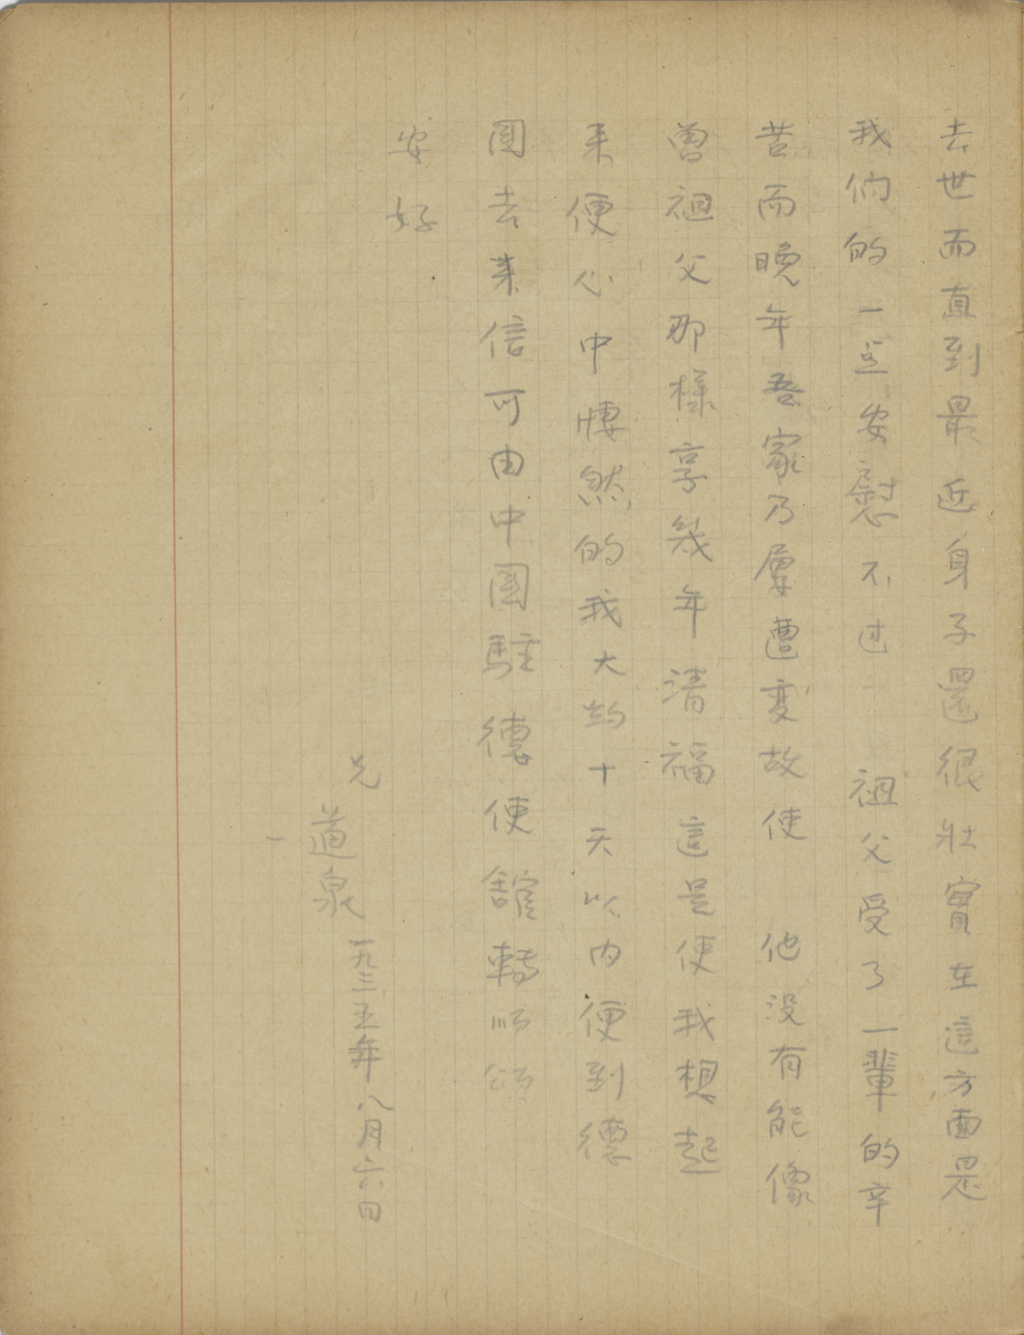 去世而直到最近身子還很壯實在這方面是
我們的一宗安慰不过　祖父受了一輩的辛
苦而晚年吾家乃屢遭变故使　他没有能像
曾祖父那樣享幾年清福這是使我想起
来便心中悽然的我大約十天以内便到德
國去来信可由中國駐德使館轉順頌
安好
兄
道泉
一九三五年八月六日